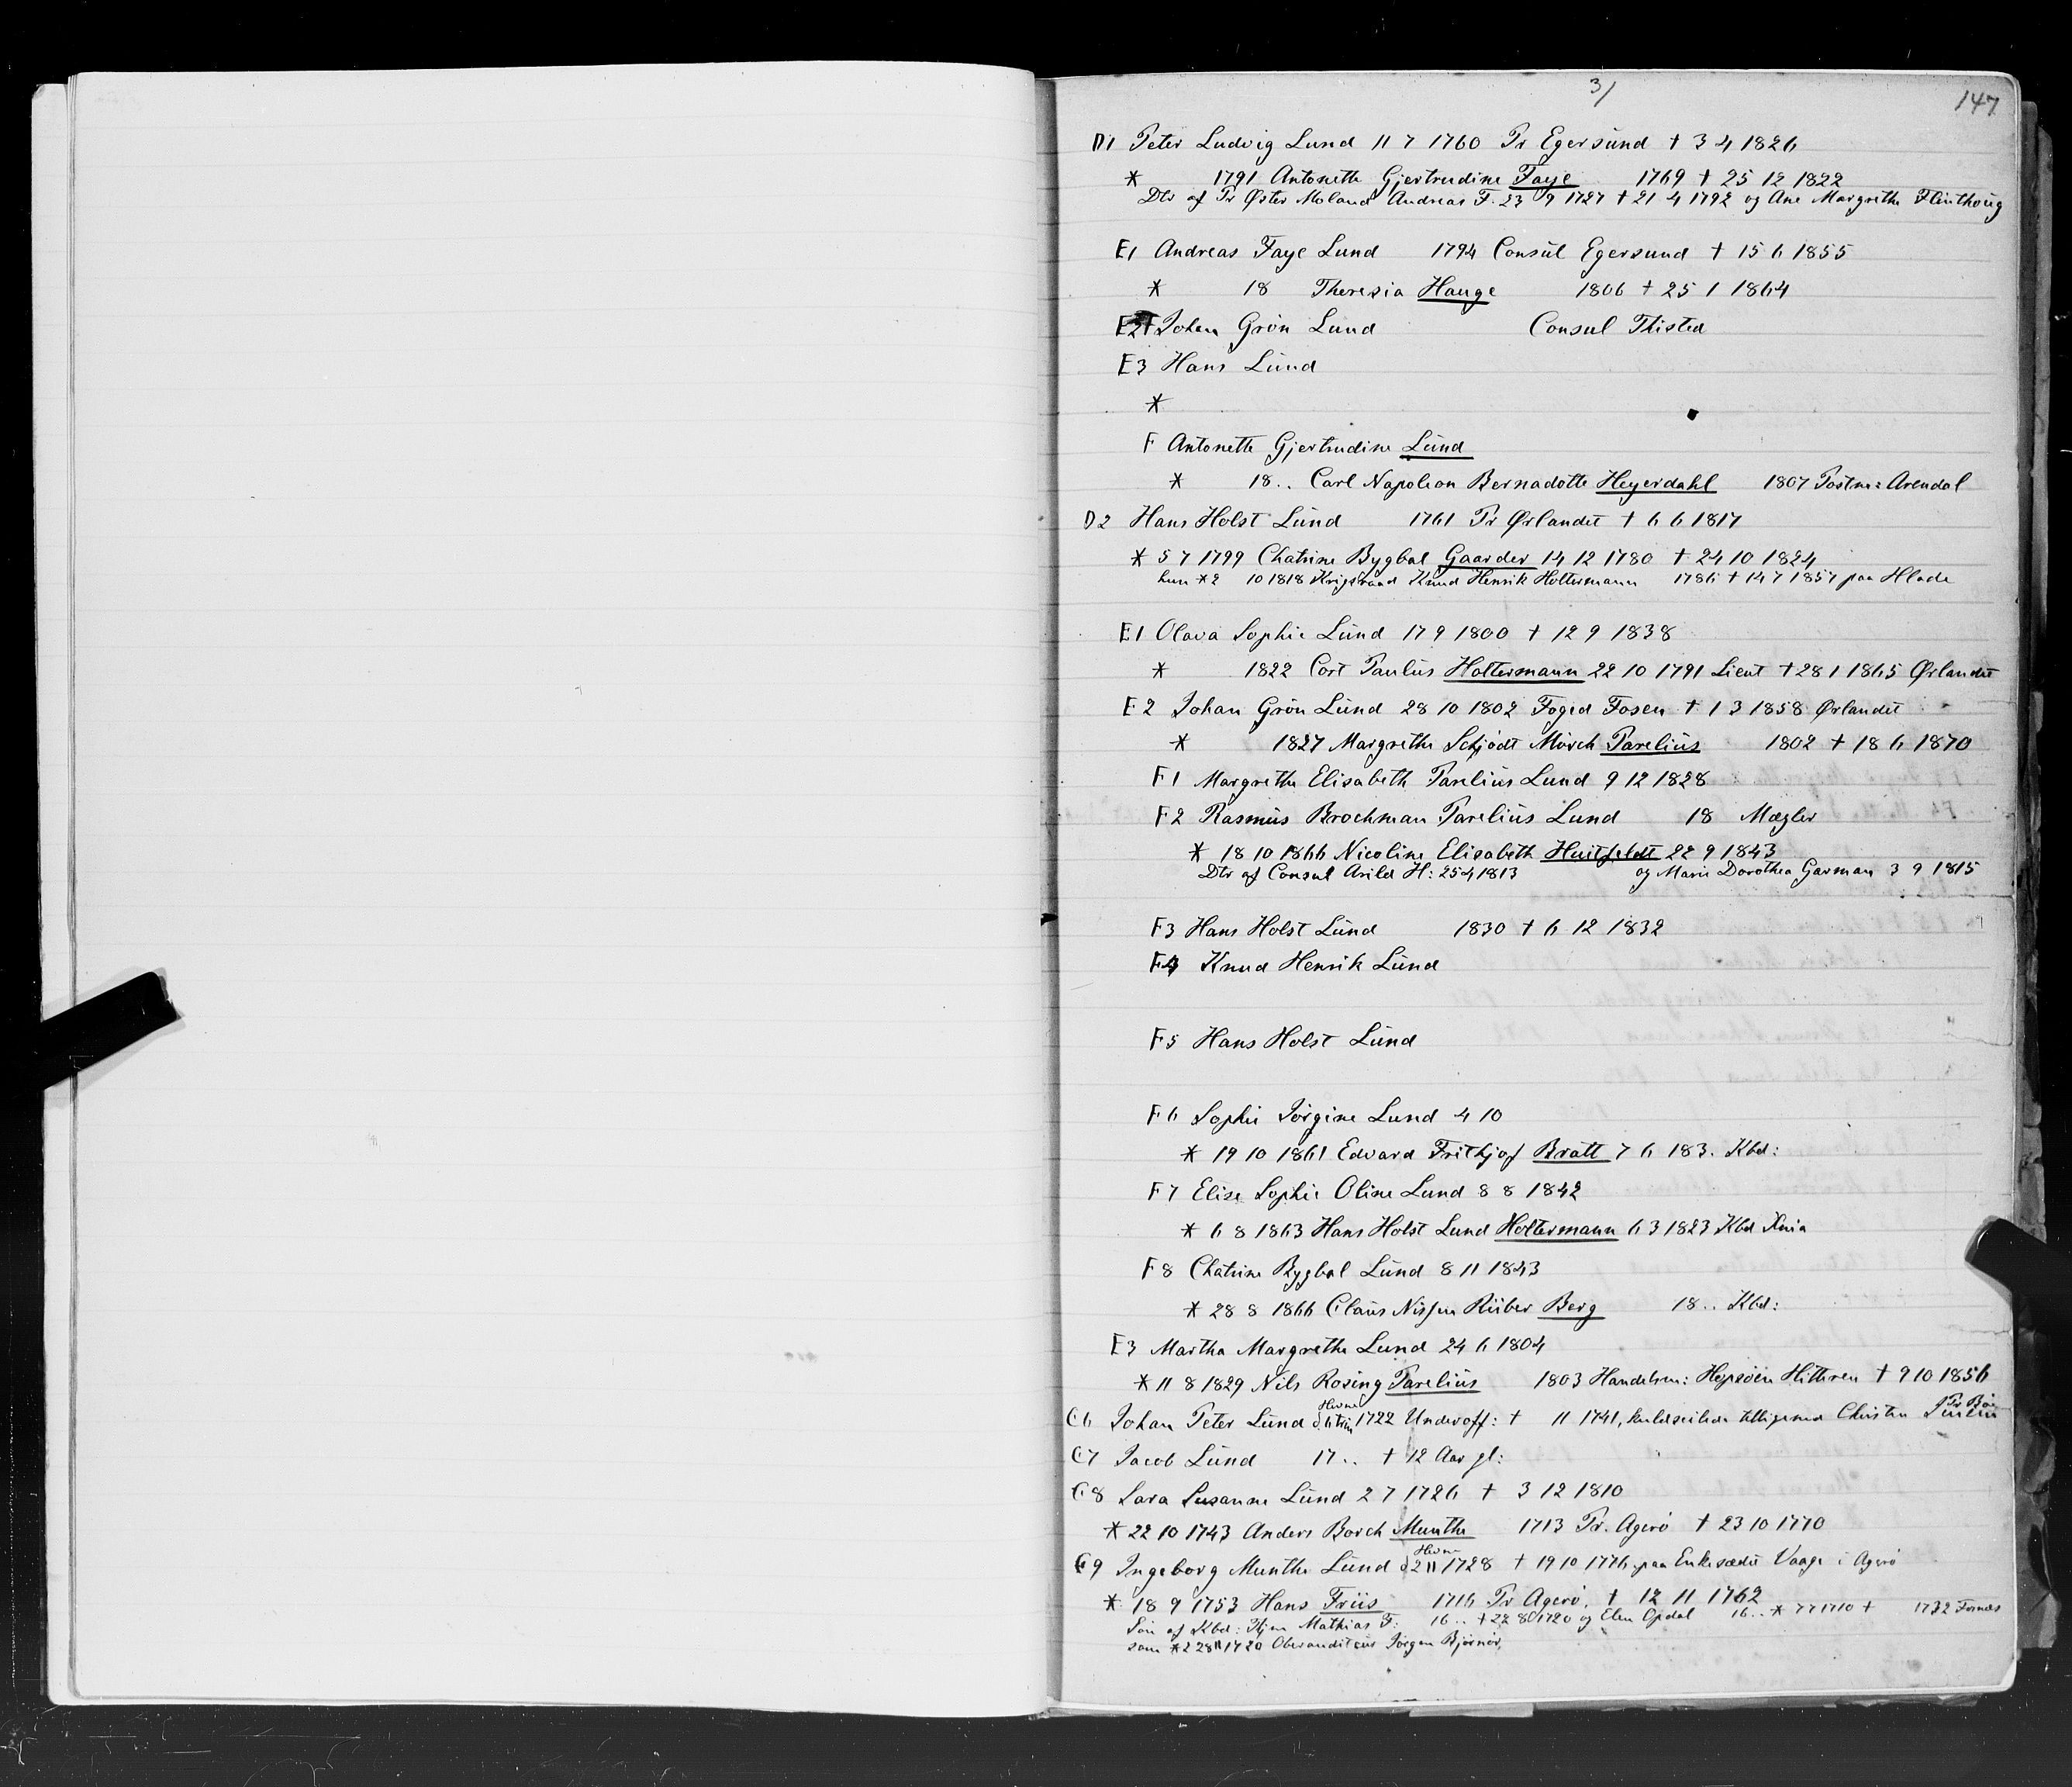 3/
147
D1 Peter Ludvig Lund 11 7 1760 Pr Egersund † 3 4 1826
* 1791 Antonette Gjertrudine Faye 1769 † 25 12 1822
Dtr af Pr Øster Moland Andreas F. 23 9 1727 † 21 4 1792 og Ane Margrethe Flinthoug
E1 Andreas Faye Lund 1794 Consul Egersund † 15 6 1855
* 18 Theresia Hauge 1806 † 25 1 1864
E2 Johan Grön Lund Consul Thisted
E3 Hans Lund
*
F Antonette Gjertrudine Lund
* 18.. Carl Napoleon Bernadotte Heyerdahl 1807 Postm: Arendal
D2 Hans Holst Lund 1761 Pr Ørlandet † 6 6 1817
* 5 7 1799 Chatrine Bygbal Gaarder 14 12 1780 † 24 10 1824
hun *2 10 1818 Krigsraad Knud Henrik Holtermann 1786 † 14 7 1857 paa Hlade
E1 Olava Sophie Lund 17 9 1800 † 12 9 1838
* 1822 Cort Paulus Holtermann 22 10 1791 Lieut † 28 1 1865 Ørlandet
E2 Johan Grön Lund 28 10 1802 Foged Fosen † 1 3 1858 Ørlandet
* 1827 Margrethe Schjödt Mörch Parelius 1802 † 18 6 1870
F1 Margrethe Elisabeth Parelius Lund 9 12 1828
F2 Rasmus Brochman Parelius Lund 18 Mægler
* 18 10 1866 Nicoline Elisabeth Huitfeldt 22 9 1843
Dtr af Consul Arild H: 25 4 1813 og Marie Dorothea Garman 3 9 1815
F3 Hans Holst Lund 1830 † 6 12 1832
F4 Knud Henrik Lund
F5 Hans Holst Lund
F6 Sophie Jörgine Lund 4 10
* 19 10 1861 Edvard Frithjof Bratt 7 6 183. Kbd:
F7 Elise Sophie Oline Lund 8 8 1842
* 6 8 1863 Hans Holst Lund Holtermann 6 3 1823 Kbd Xnia
F8 Chatrine Bygbal Lund 8 11 1843
* 28 8 1866 Claus Nissen Riiber Berg 18.. Kbd:
E3 Martha Margrethe Lund 24 6 1804
* 11 8 1829 Nils Rosing Parelius 1803 Handelsm: Hopsöen Hitteren † 9 10 1856
C6 Johan Peter Lund Hevne 1722 Underoff: † 11 1741, kuldseilede tilligemed Christen
C7 Jacob Lund 17.. † 12 Aar gl:
C8 Sara Susanne Lund 2 7 1726 † 3 12 1810
* 22 10 1743 Anders Borch Munthe 1713 Pr. Agerö † 23 10 1770
C9 Ingeborg Munthe Lund Hevne d 2 11 1728 † 19 10 1776 paa Enkesædet Vaage i Agerö
* 18 9 1753 Hans Friis 1716 Pr Agerö, † 12 11 1762
Sön af Kbd: Hjem Mathias F: 16.. † 22 8 1720 og Elen Opdal 16.. * 7 7 1710 † 1732 Fornes
som *2 28 11 1720 Oberauditeur Jörgen Björnör,